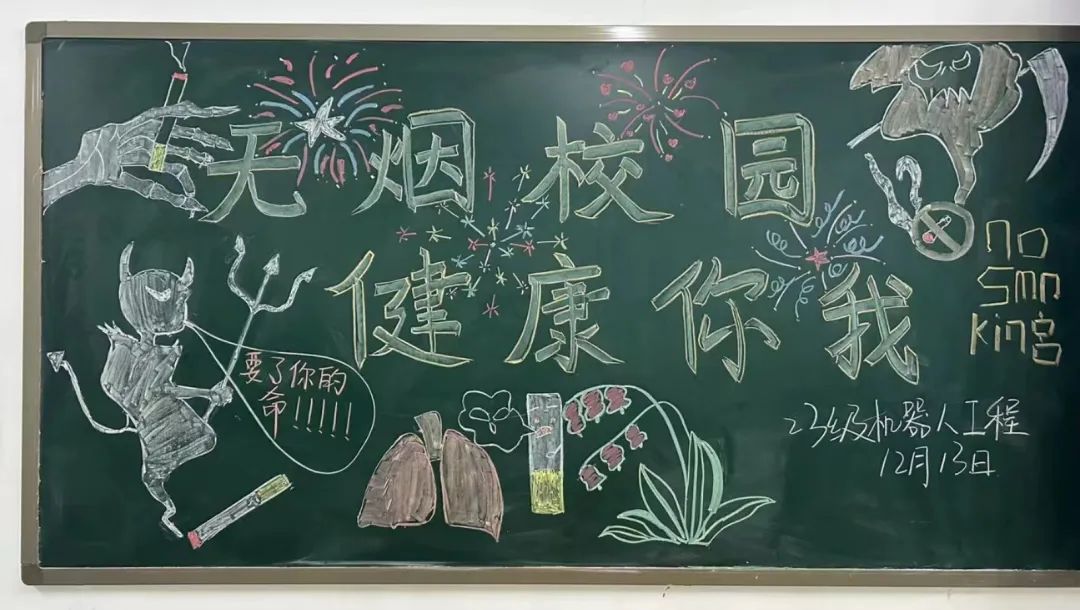 无烟校园
健康你我
no
smo
king
要了你的
命!!!!!
23级机器人工程
12月13日